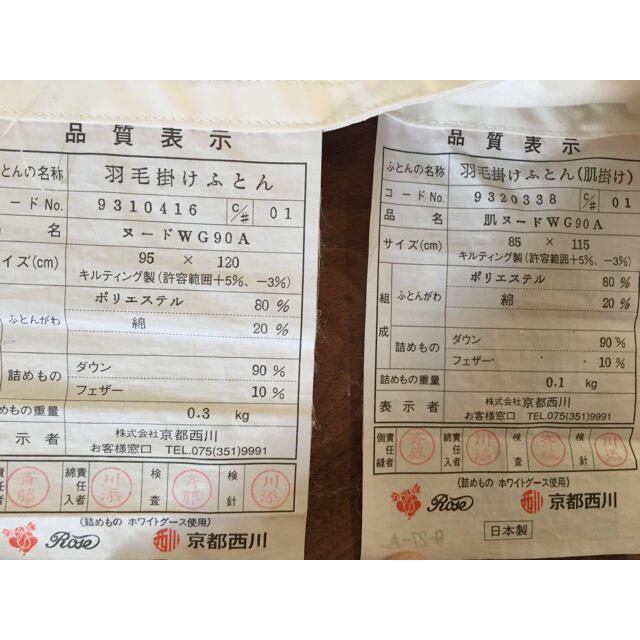 品質表示
ふとんの名称 羽毛掛けふとん
コードNo. 9310416 C/# 01
名 ヌードWG90A
イズ(cm) 95 × 120
キルティング製(許容範囲+5%、−3%)
ふとんがわ ポリエステル 80 %
綿 20 %
詰めもの ダウン 90 %
フェザー 10 %
めもの重量 0.3 kg
示者 株式会社京都西川
お客様窓口 TEL.075(351)9991
責任者 斉藤 綿入 責任者 川添 検査 斉藤 検針 川添
(詰めもの ホワイトグース使用)
Rose 西川 京都西川
品質表示
ふとんの名称 羽毛掛けふとん(肌掛け)
コードNo. 9320338 C/# 01
品名 肌ヌードWG90A
サイズ(cm) 85 × 115
キルティング製(許容範囲+5%、−3%)
組成 ふとんがわ ポリエステル 80 %
綿 20 %
詰めもの ダウン 90 %
フェザー 10 %
詰めもの重量 0.1 kg
表示者 株式会社京都西川
お客様窓口 TEL.075(351)9991
側縫 責任者 斉藤 綿入 責任者 川添 検査 斉藤 検針 川添
(詰めもの ホワイトグース使用)
Rose 西川 京都西川
日本製